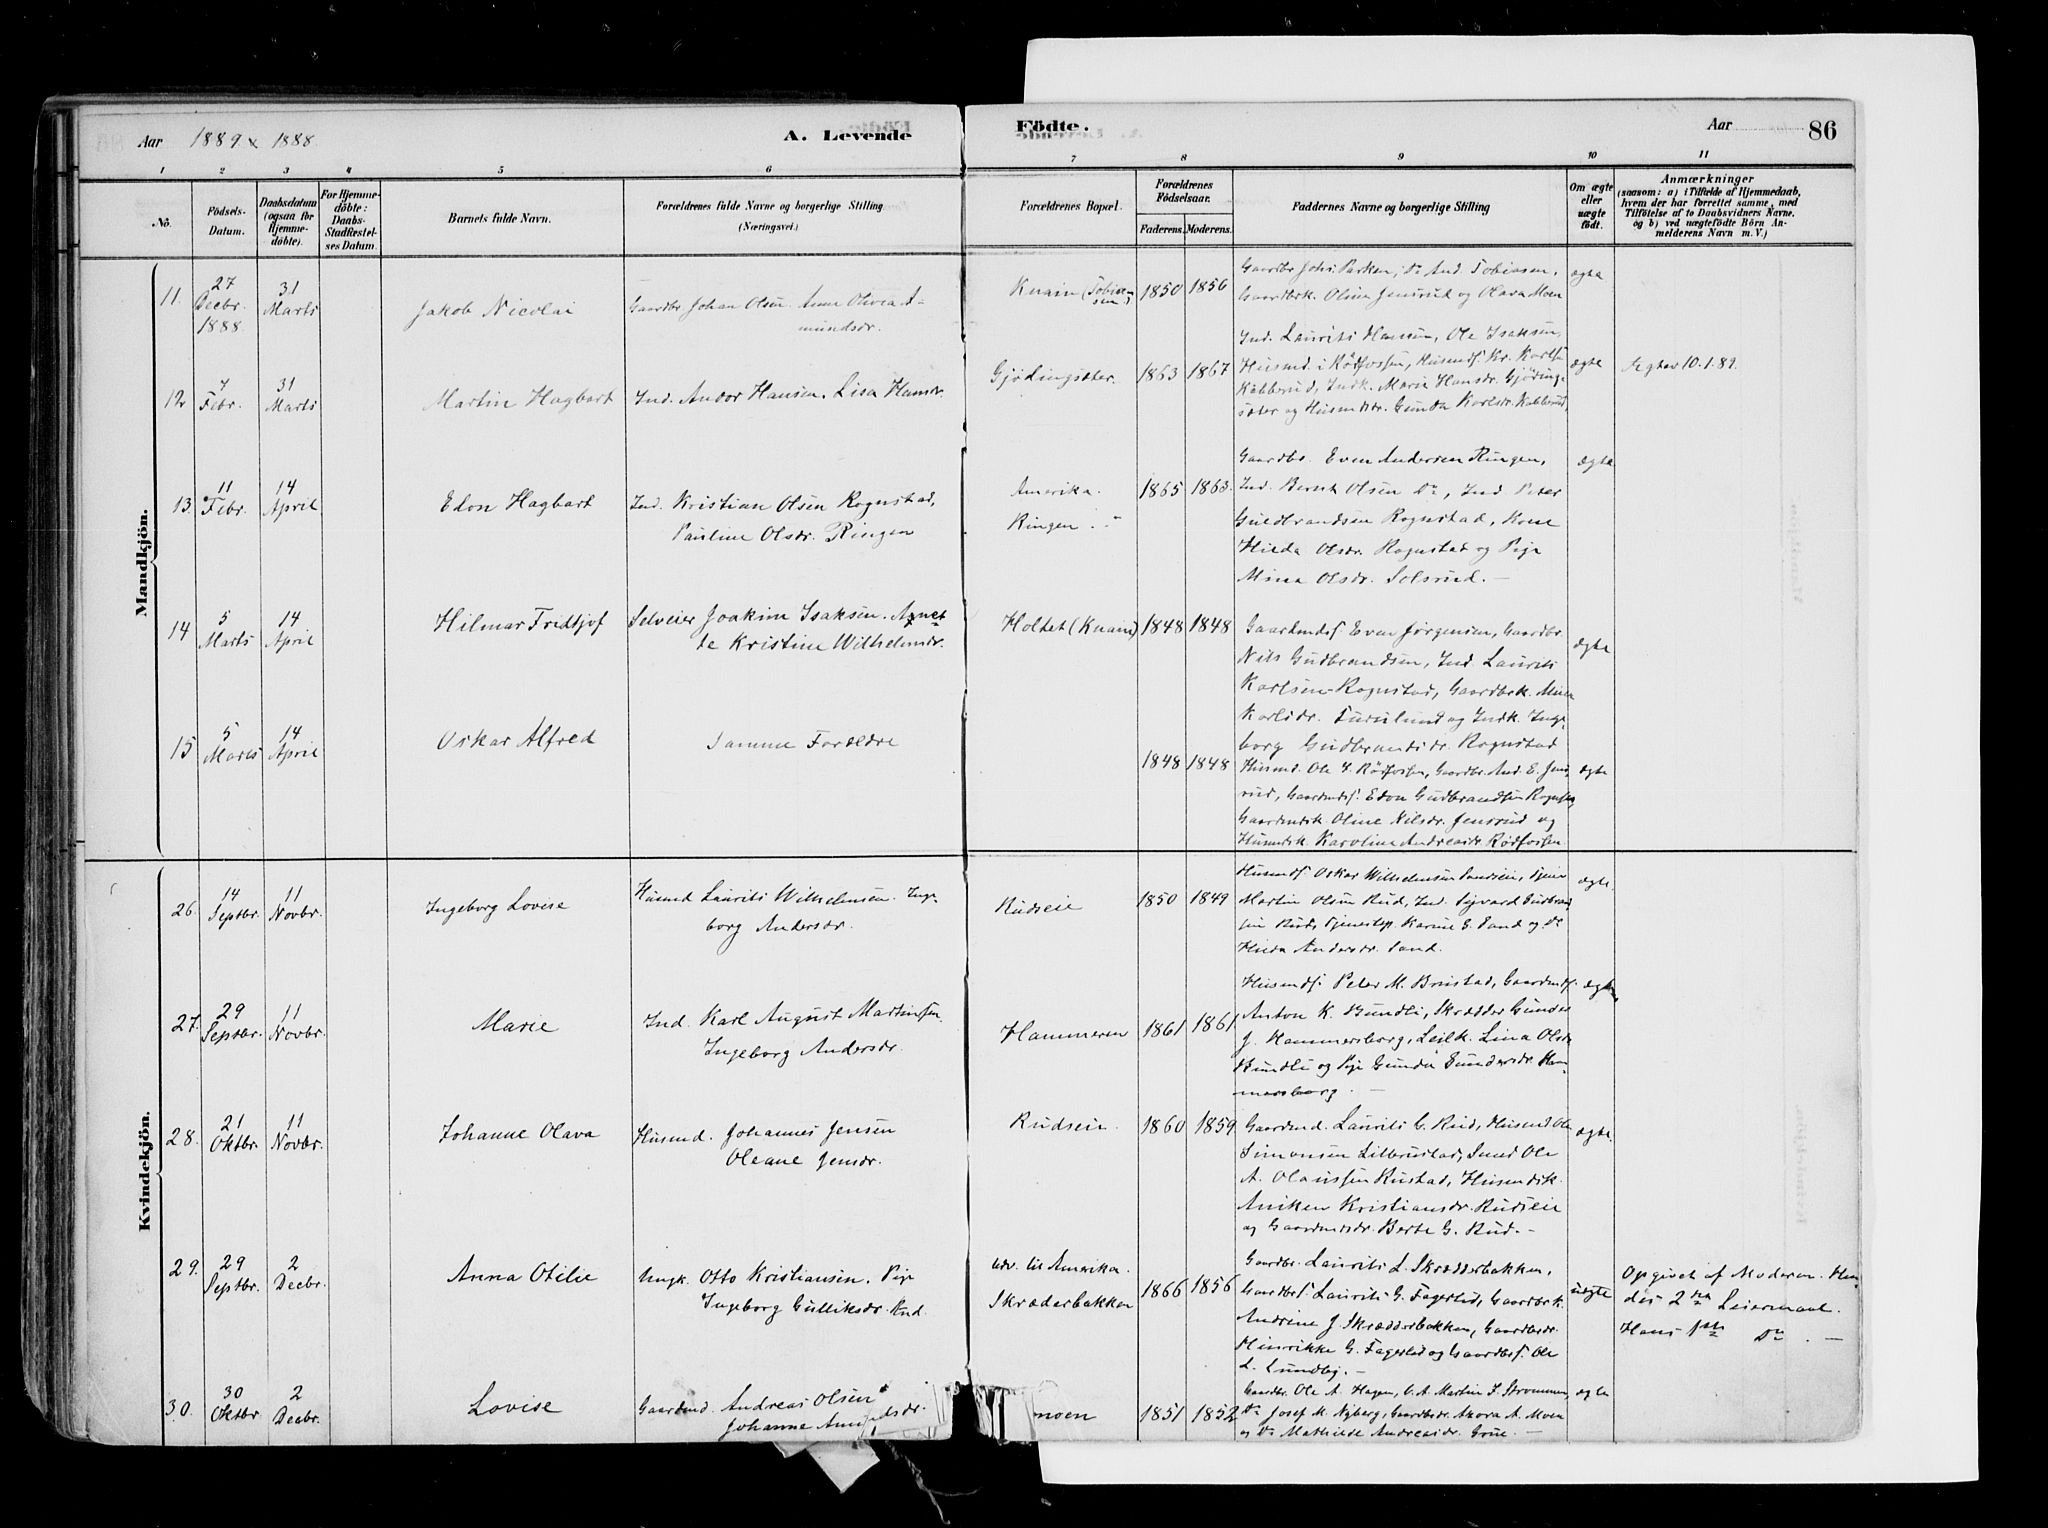 Aar 1889 & 1888 A. Levende Födte. Aar 86
1 2 3 4 5 6 7 8 9 10 11
No. Födsels-Datum. Daabsdatum (ogsaa for Hjemmedöbte). For Hjemmedöbte: Daabs-Stadfæstelses Datum. Barnets fulde Navn. Forældrenes fulde Navne og borgerlige Stilling (Næringsvei.) Forældrenes Bopæl. Forældrenes Födselsaar. Faderens. Moderens. Faddernes Navne og borgerlige Stilling Om ægte eller uægte födt. Anmærkninger (saasom: a) i Tilfælde af Hjemmedaab, hvem der har forrettet samme, med Tilföielse af to Daabsvidners Navne, og b) ved uægtefödte Börn Anmelderens Navn m. V.)
Mandkjön.
11. 27 Decbr. 1888 31 Marts Jakob Nicolai Gaardbr Johan Olsen. Anne Olivea Amundsdr. Knain (Tobiassen) 1850 1856 ægte
Gaardbr Johs. Parken, Do And. Tobiassen,
Gaardbrk. Oline Jensrud og Olava Moen
12 7 Febr. 31 Marts Martin Hagbart Ind. Andor Hansen. Lisa Hansdr. Gjödingsæter. 1863 1867 ægte Ægtev 10.1.89.
Ind. Laurits Hansen, Ole Isaksen,
Husmd. i Rödfossen, Husmds. Kr. Karlsen
Kabberud, Indk. Marie Hansdr. Gjödingsæter og Husmdsdr. Gunda Karlsdr. Kabberud,
13. 11 Febr. 14 April Edon Hagbart Ind. Kristian Olsen Rognstad, Pauline Olsdr. Ringen Amerika. Ringen 1865 1863. ægte
Gaardbr. Even Andersen Ringen,
Ind. Bernt Olsen Do, Ind Peter
Guldbrandsen Rognstad, Kone
Hilda Olsdr. Rognstad og Pige
Mina Olsdr. Solsrud. —
14 5 Marts 14 April Hilmar Fridtjof Selveier Joakim Isaksen. Agnette Kristine Wilhelmsdr. Holtet (Knain) 1848 1848 ægte
Gaardmds. Even Jörgensen, Gaardbr.
Nils Gudbrandsen, Ind Laurits
Karlsen Rognstad, Gaardbrk. Mina
Karlsdr. og Indk. Ingeborg Gudbrandsdr. Rognstad
15 5 Marts 14 April Oskar Alfred Samme Forældre 1848 1848 ægte
Husmd. Ole Rödfossen, Gaardbr. And. E. Jensrud, Gaardmds. Edon Gudbrandsen
Gaardmdsk. Oline Nilsdr. Jensrud og
Husmdsk. Karoline Andreasdr. Rödfossen
Kvindekjön.
26. 14 Septbr. 11 Novbr. Ingeborg Lovise Husmd Laurits Wilhelmsen. Ingeborg Andersdr. Rudseie 1850 1849 ægte
Husmds. Oskar Wilhelmsen
Martin Olsen Rud, Ind. Sigvard
Rud, Tjenestep. Karine G. Sand og Do
Hilda Andersdr. Sand.
27. 29 Septbr. 11 Novbr. Marie Ind. Karl August Martinsen. Ingeborg Andersdr. Hammeren 1861 1861 ægte
Husmds. Peter M. Brustad, Gaardmds.
Anton K. Bundli, Skrædder Gunder
J. Hammersborg, Leilk. Lina Olsdr
Bundli og Pige Gunda Gundersdr. Hammersborg. —
28. 21 Oktbr. 11 Novbr. Johanne Olava Husmd. Johannes Jensen Oleane Jensdr. Rudseie 1860 1859 ægte
Gaardmd. Laurits C. Rud, Husmd Ole
Simonsen Lillerustad, Smed Ole
A. Olaussen Rustad, Husmdsk.
Aniken Kristiansdr. Rudseie
og Gaardmdsdr. Berte G. Rud. —
29. 29 Septbr. 2 Decbr. Anna Otilie Ungk. Otto Kristiansen. Pige Ingeborg Gulliksdr. Rud. udv. til Amerika. Skræderbakken 1866 1856 uægte
Gaardbr. Laurits L. Skrædderbakken,
Gaardbrs. Laurits G. Fagerlid, Gaardbrk.
Andrine J Skrædderbakken, Gaardbrdr.
Hinrikke G. Fagerlid og Gaardbrs. Ole
L. Lundby. —
Opgivet af Moderen. Hendes 2den Leiermaal.
Hans 1ste Do. —
30. 30 Oktbr 2 Decbr. Lovise Gaardmd. Andreas Olsen Johanne Amundsdr. moen 1851 1852 ægte
Gaardbr. Ole A. Hagen, Martin S. Strommen,
Do Josef M. Nyberg, Gaardbrdr. Anora A. Moen
og Do Mathilde Andreasdr. Grue. —